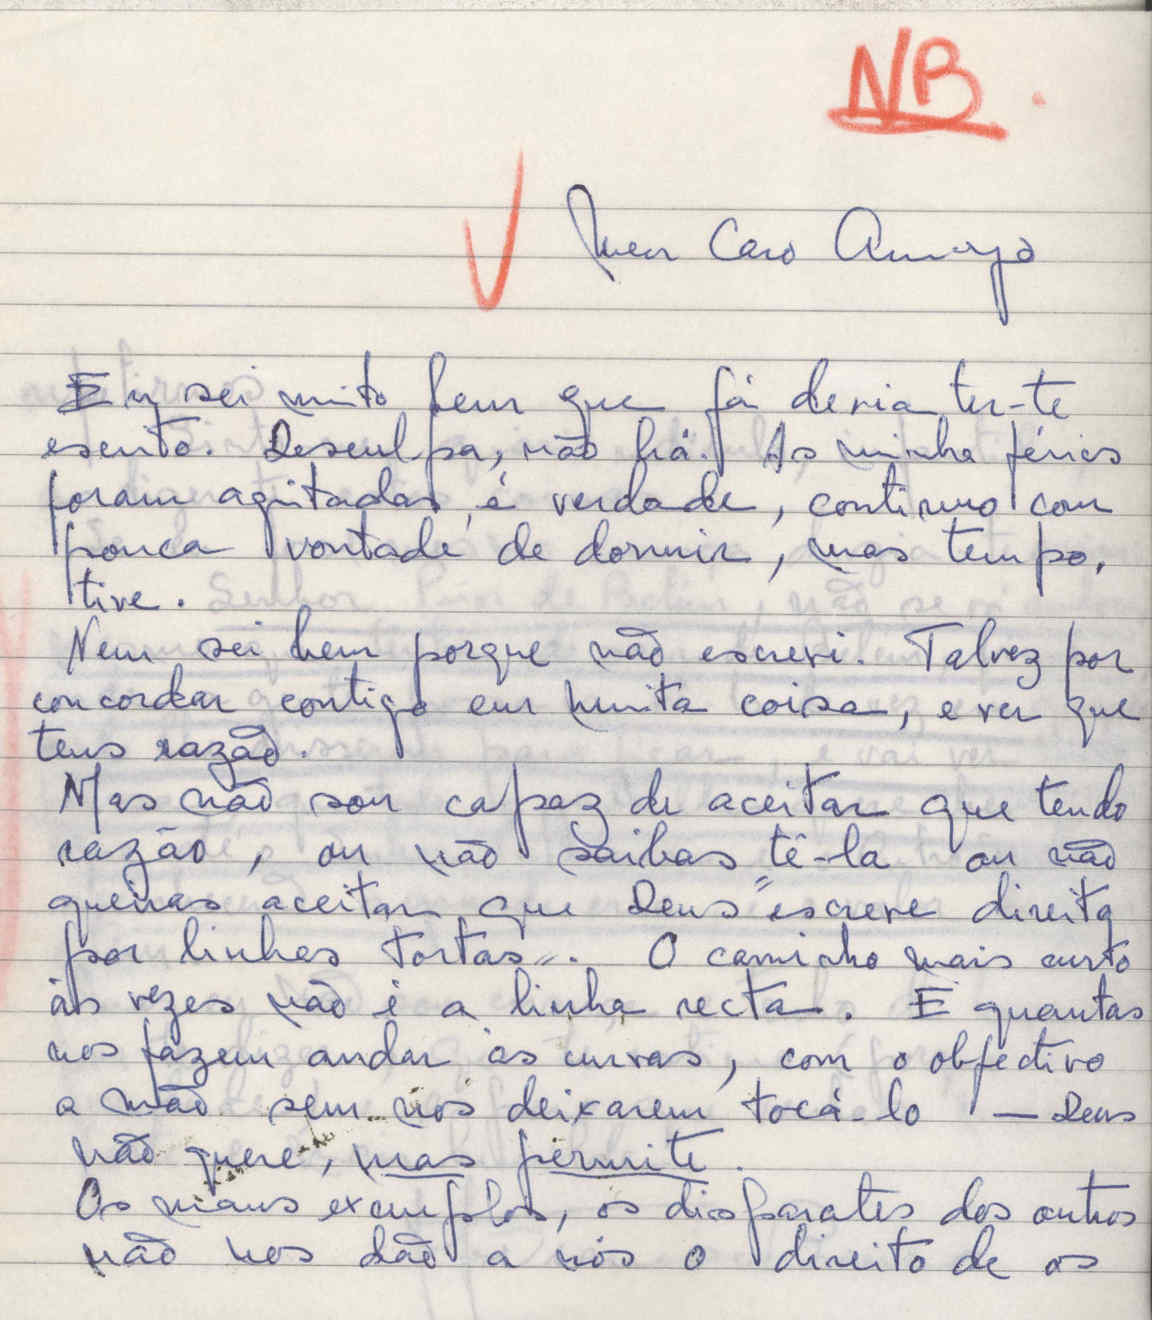 NB.
Meu Caro Amigo
Eu sei muito bem que já devia ter-te
escrito. Desculpa, não há. As minha férias
foram agitadas, é verdade, continuo com
pouca vontade de dormir, mas tempo,
tive.
Nem sei bem porque não escrevi. Talvez por
concordar contigo em muita coisa, e ver que
tens razão.
Mas não sou capaz de aceitar que tendo
razão, ou não saibas tê-la ou não
queiras aceitar que Deus "escreve direito
por linhas tortas". O caminho mais curto
às vezes não é a linha recta. E quantas
nos fazem andar às curvas, com o objectivo
a mão sem nos deixarem tocá-lo — Deus
não quere, mas permite.
Os maus exemplos, os disparates dos outros
não nos dão a nós o direito de os